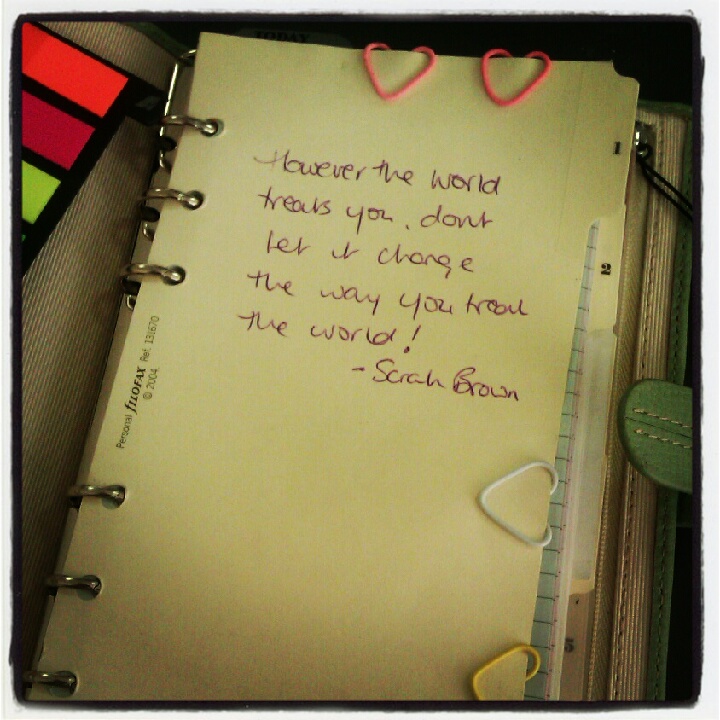 TODAY
1
However the world
treats you, dont
let it change
2
the way you treat
the world!
- Sarah Brown
Personal fILOFAX Ref. 131670
© 2004
5